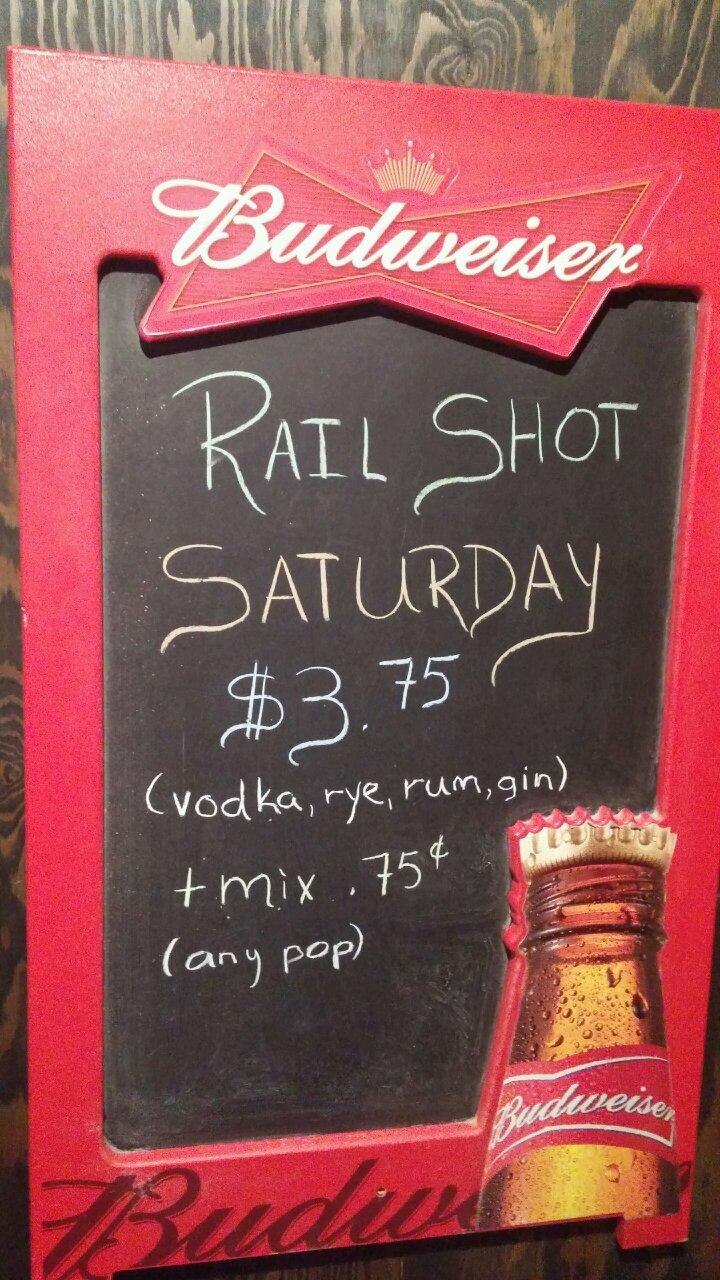 Budweiser
RAIL SHOT
SATURDAY
$3.75
(vodka, rye, rum, gin)
+ mix .75¢
(any pop)
Budweiser
Budwe